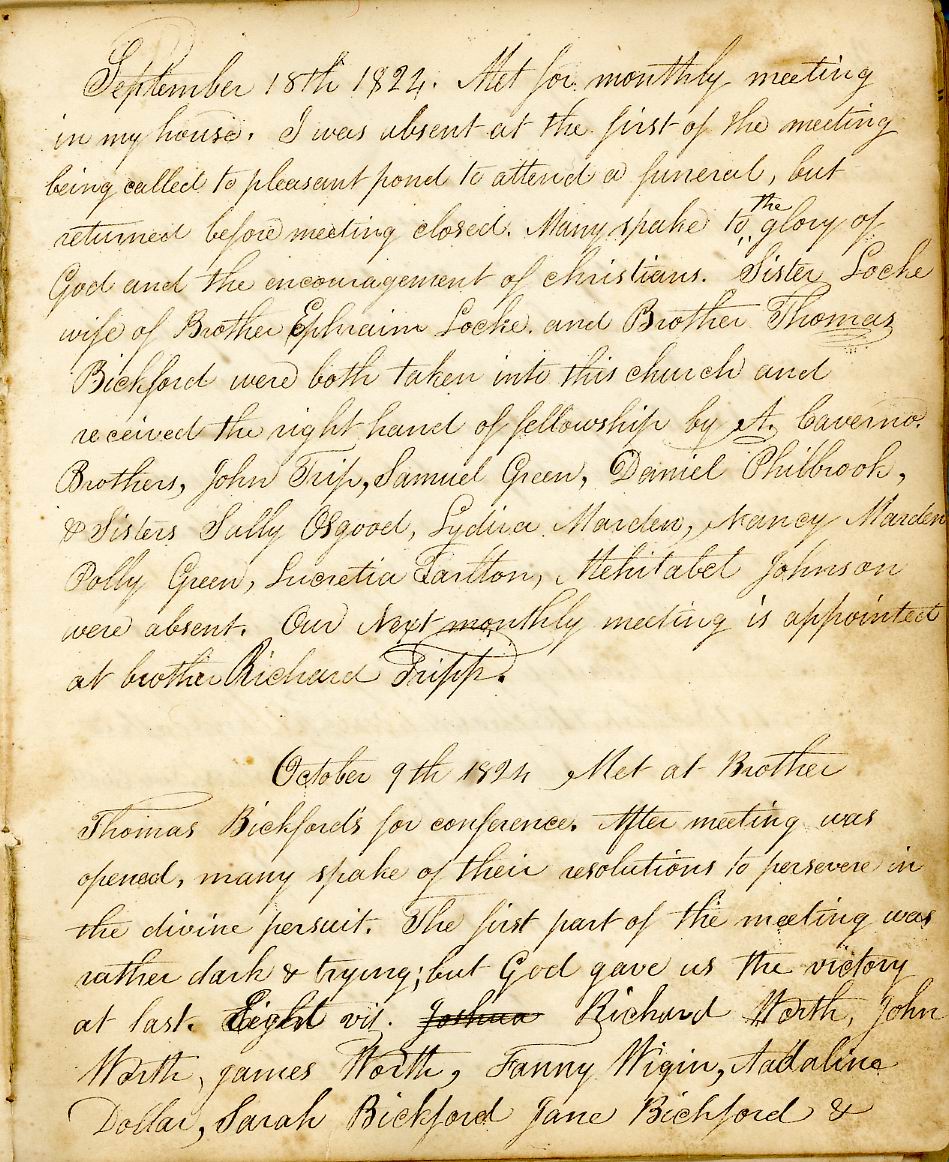 September 18th 1824. Met for monthly meeting
in my house. I was absent at the first of the meeting
being called to pleasant pond to attend a funeral, but
returned before meeting closed. Many spake to the glory of
God and the encouragement of christians. Sister Locke
wife of Brother Ephraim Locke. and Brother Thomas
Bickford were both taken into this church and
received the right hand of fellowship by A. Caverno.
Brothers, John Trip, Samuel Green, Daniel Philbrook,
& Sisters Sally Osgood, Lydia Marden, Nancy Marden
Polly Green, Lucretia Tarlton, Mehitabel Johnson
were absent. Our Next monthly meeting is appointed
at brother Richard Tripp.
October 9th 1824 Met at Brother
Thomas Bickford's for conference. After meeting was
opened, many spake of their resolutions to persevere in
the divine persuit. The first part of the meeting was
rather dark & trying; but God gave us the victory
at last. Eight viz. Joshua Richard Worth, John
Worth, james Worth, Fanny Wigin, Aadaline
Dollar, Sarah Bickford Jane Bickford &